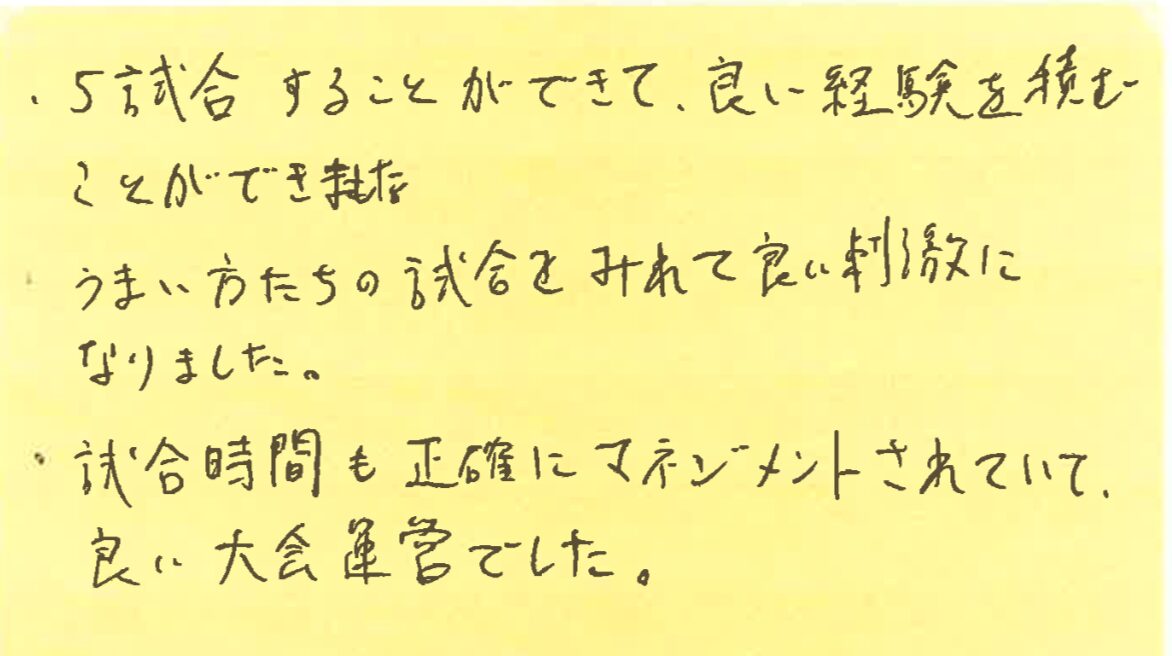 ・5試合することができて、良い経験を積む
ことができました
・うまい方たちの試合をみれて良い刺激に
なりました。
・試合時間も正確にマネジメントされていて、
良い大会運営でした。